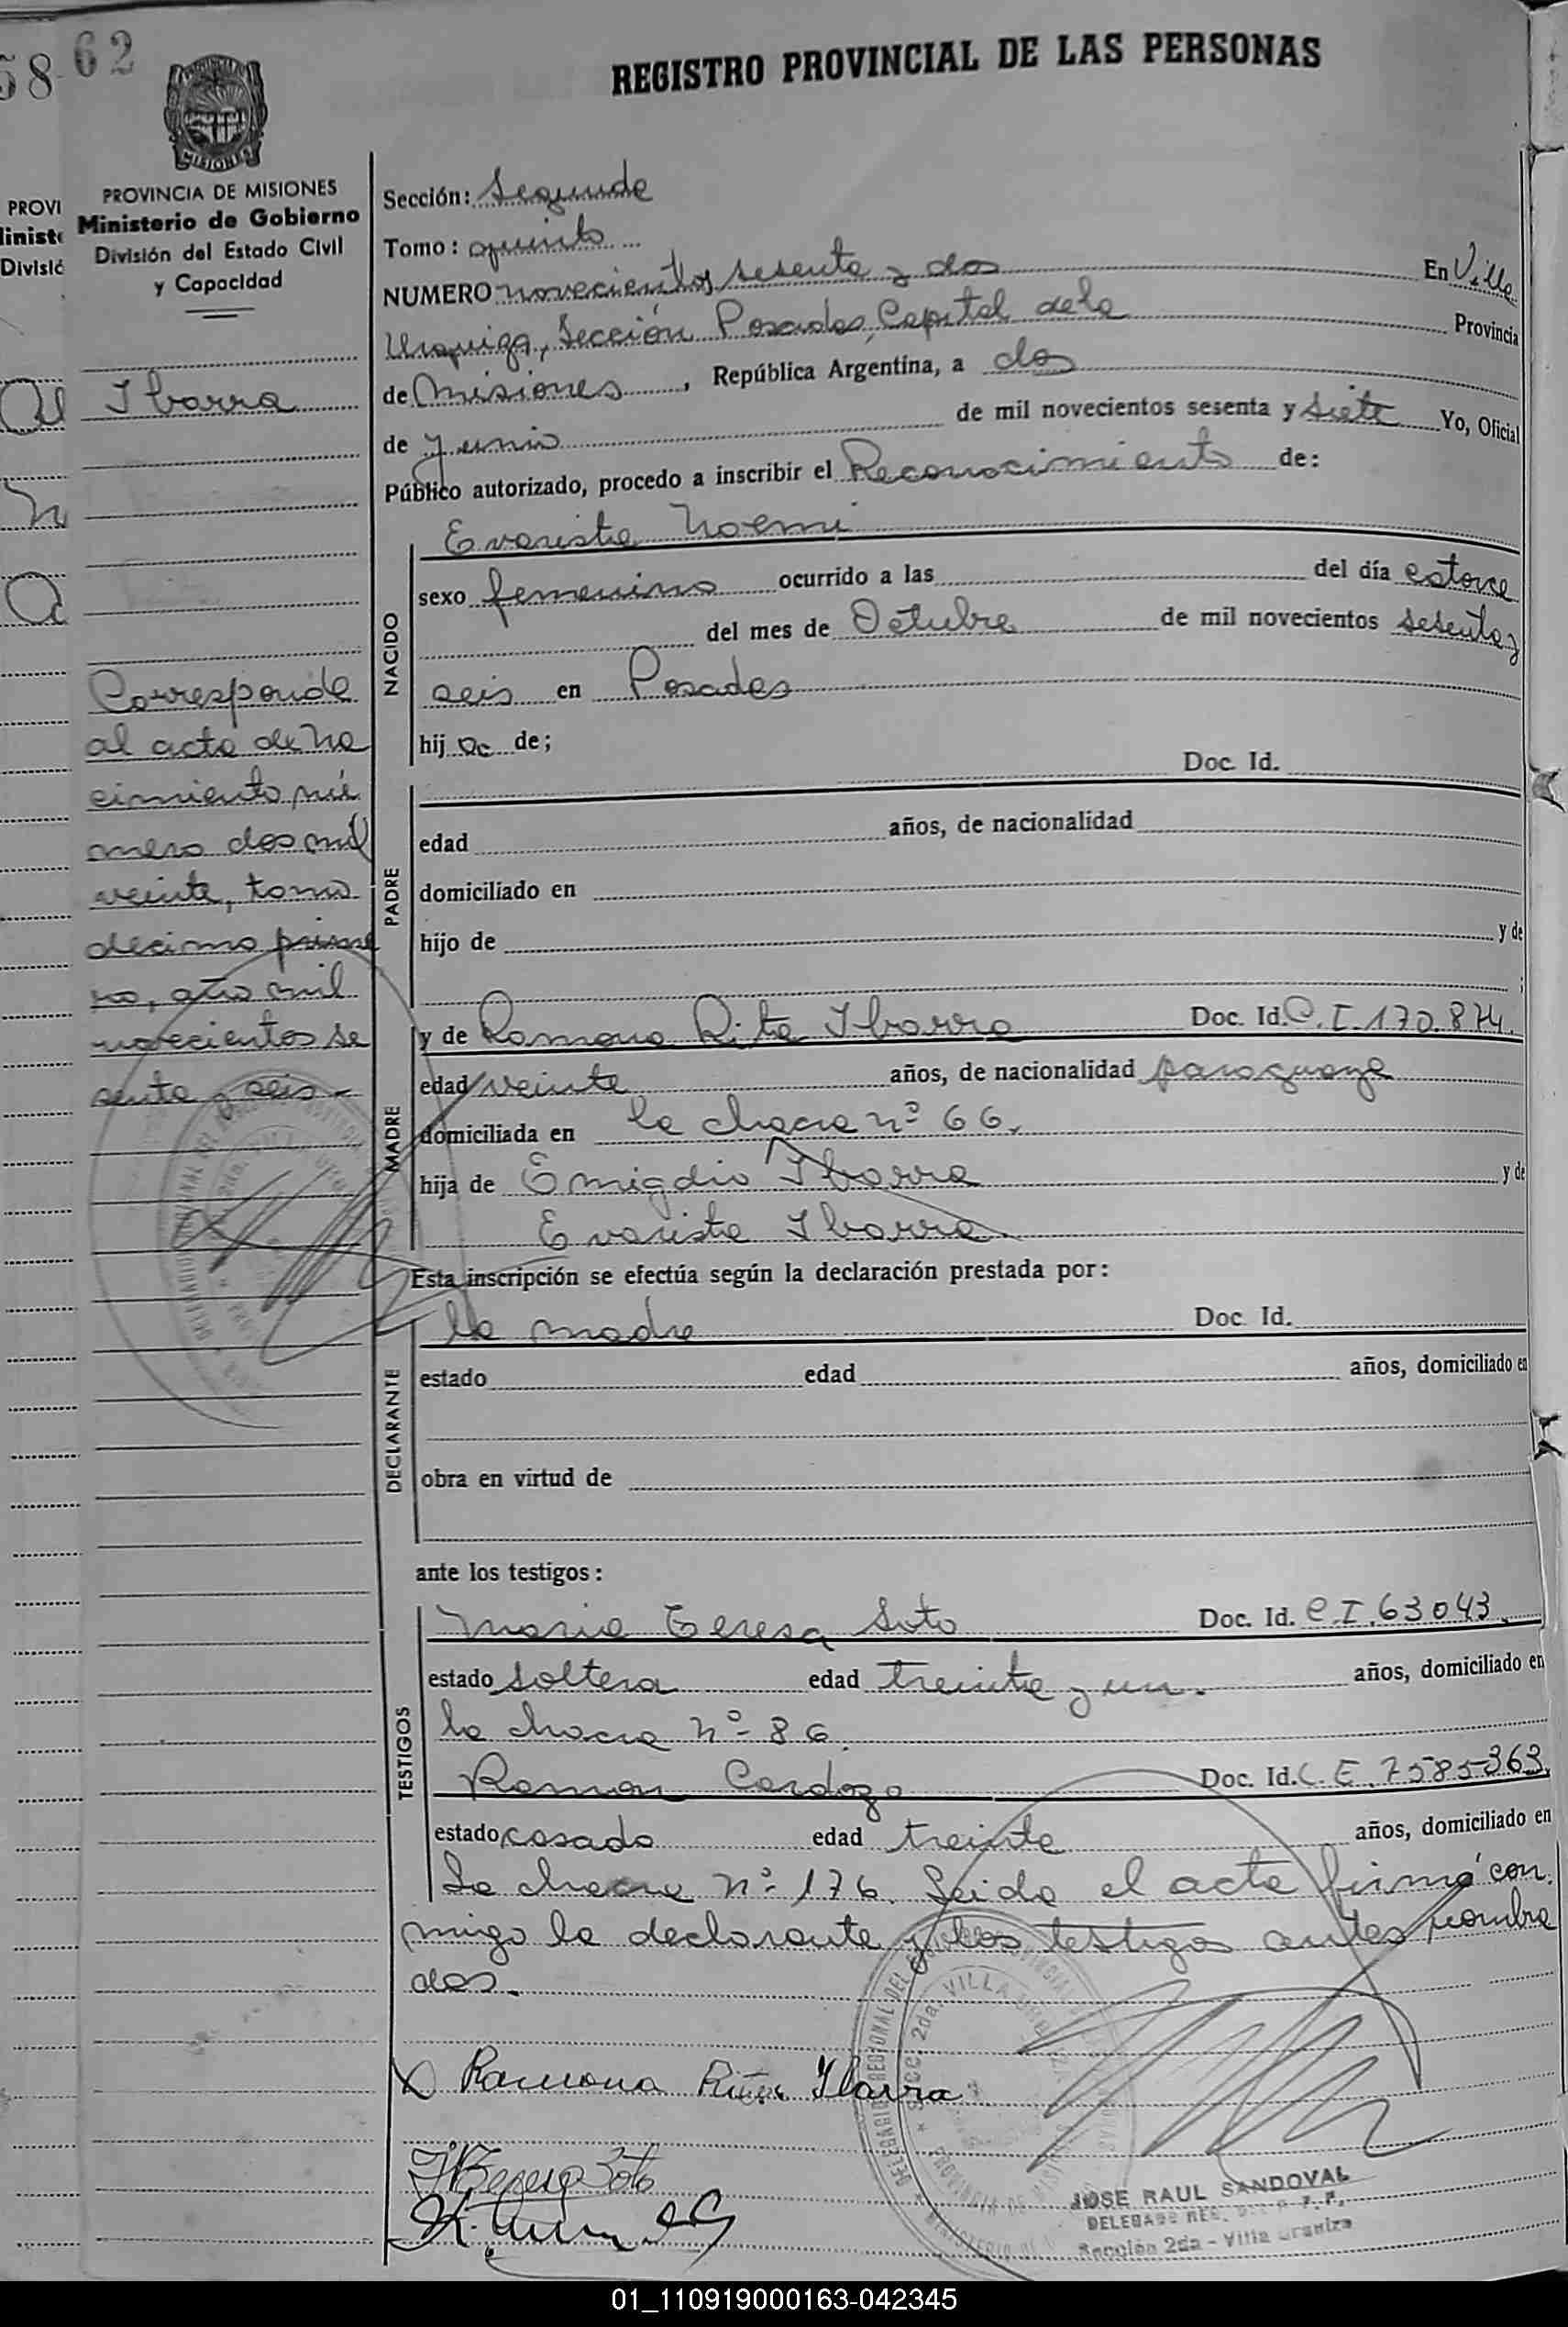 58 62
REGISTRO PROVINCIAL DE LAS PERSONAS
MISIONES
PROVINCIA DE MISIONES
Ministerio de Gobierno
División del Estado Civil
y Capacidad
Ibarra
Corresponde
al acta de na
cimiento nú
mero dos mil
veinte, tomo
decimo prime
ro, año mil
novecientos se
senta y seis.-
Sección: Segunda
Tomo: quinto
NUMERO novecientos sesenta y dos En Villa
Urquiza, Sección Posadas, Capital de la Provincia
de Misiones, República Argentina, a dos
de junio de mil novecientos sesenta y siete Yo, Oficial
Público autorizado, procedo a inscribir el Reconocimiento de:
NACIDO
Evarista Noemi
sexo femenino ocurrido a las del día catorce
del mes de Octubre de mil novecientos sesenta y
seis en Posadas
hij a de;
PADRE
Doc. Id.
edad años, de nacionalidad
domiciliado en
hijo de y de
;
MADRE
y de Ramona Rita Ibarra Doc. Id. C. I. 170.874.
edad veinte años, de nacionalidad paraguaya
domiciliada en la chacra nº 66.
hija de Emigdio Ibarra y de
Evarista Ibarra
Esta inscripción se efectúa según la declaración prestada por:
DECLARANTE
la madre Doc. Id.
estado edad años, domiciliado en
obra en virtud de
ante los testigos:
TESTIGOS
Maria Teresa Soto Doc. Id. C.I. 63043.
estado soltera edad treinta y un. años, domiciliado en
la chacra nº 86.
Ramon Cardozo Doc. Id. C. E. 7585363.
estado casado edad treinta años, domiciliado en
la chacra nº 176. Leida el acta firmó con
migo la declarante y los testigos antes nombra
dos.
Ramona Rita Ibarra
M Teresa Soto
JOSE RAUL SANDOVAL
Sección 2da - Villa Urquiza
01_110919000163-042345